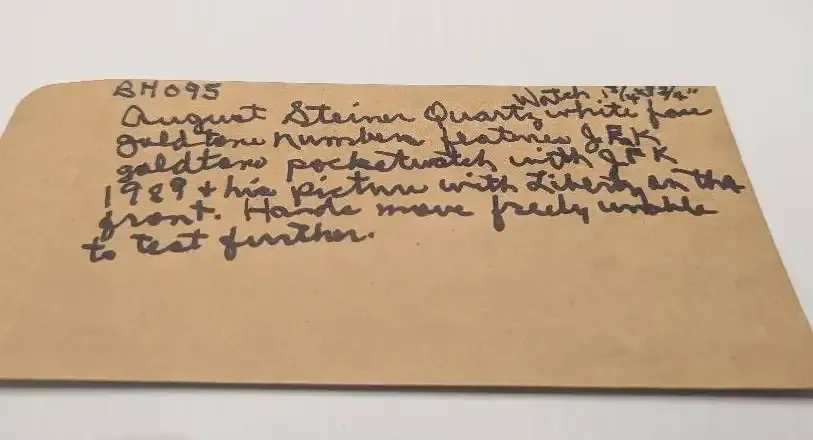 BH095
Watch 1 3/4"
August Steiner Quartz white face
goldtone numbers features J.F.K
goldtone pocketwatch with JFK
1989 + his picture with Liberty on the
front. Hands move freely unable
to test further.